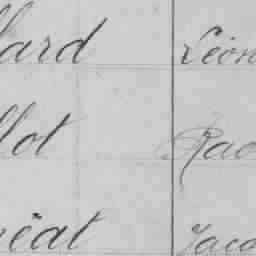 lard Léon
llot Rao
réat Jaco